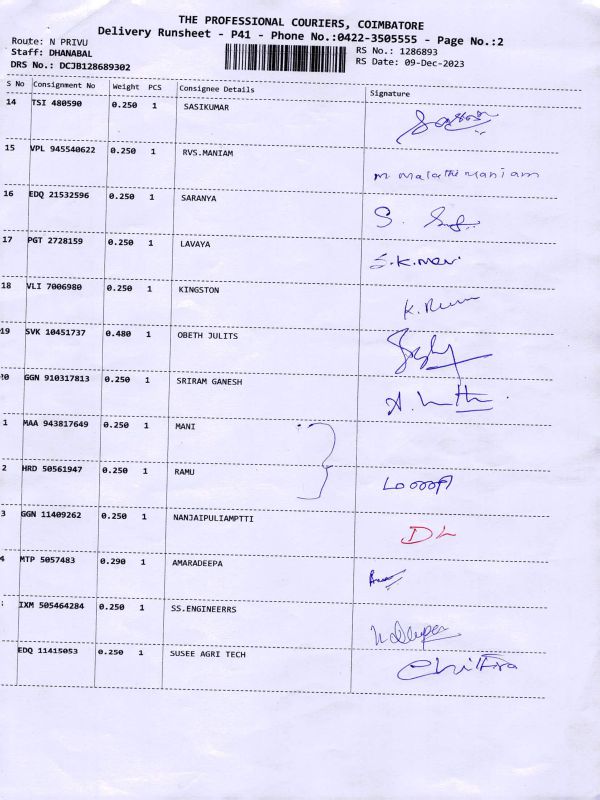 THE PROFESSIONAL COURIERS, COIMBATORE
Delivery Runsheet - P41 - Phone No.:0422-3505555 - Page No.:2
Route: N PRIVU
Staff: DHANABAL
DRS No.: DCJB128689302
RS No.: 1286893
RS Date: 09-Dec-2023
S No Consignment No Weight PCS Consignee Details Signature
14 TSI 480590 0.250 1 SASIKUMAR
15 VPL 945540622 0.250 1 RVS.MANIAM
M Malathi Maniam
16 EDQ 21532596 0.250 1 SARANYA
S.
17 PGT 2728159 0.250 1 LAVAYA
S.K.Mani
18 VLI 7006980 0.250 1 KINGSTON
K.
19 SVK 10451737 0.480 1 OBETH JULITS
20 GGN 910317813 0.250 1 SRIRAM GANESH
A.
1 MAA 943817649 0.250 1 MANI
2 HRD 50561947 0.250 1 RAMU
3 GGN 11409262 0.250 1 NANJAIPULIAMPTTI
DL
4 MTP 5057483 0.290 1 AMARADEEPA
IXM 505464284 0.250 1 SS.ENGINEERRS
EDQ 11415053 0.250 1 SUSEE AGRI TECH
Chithra